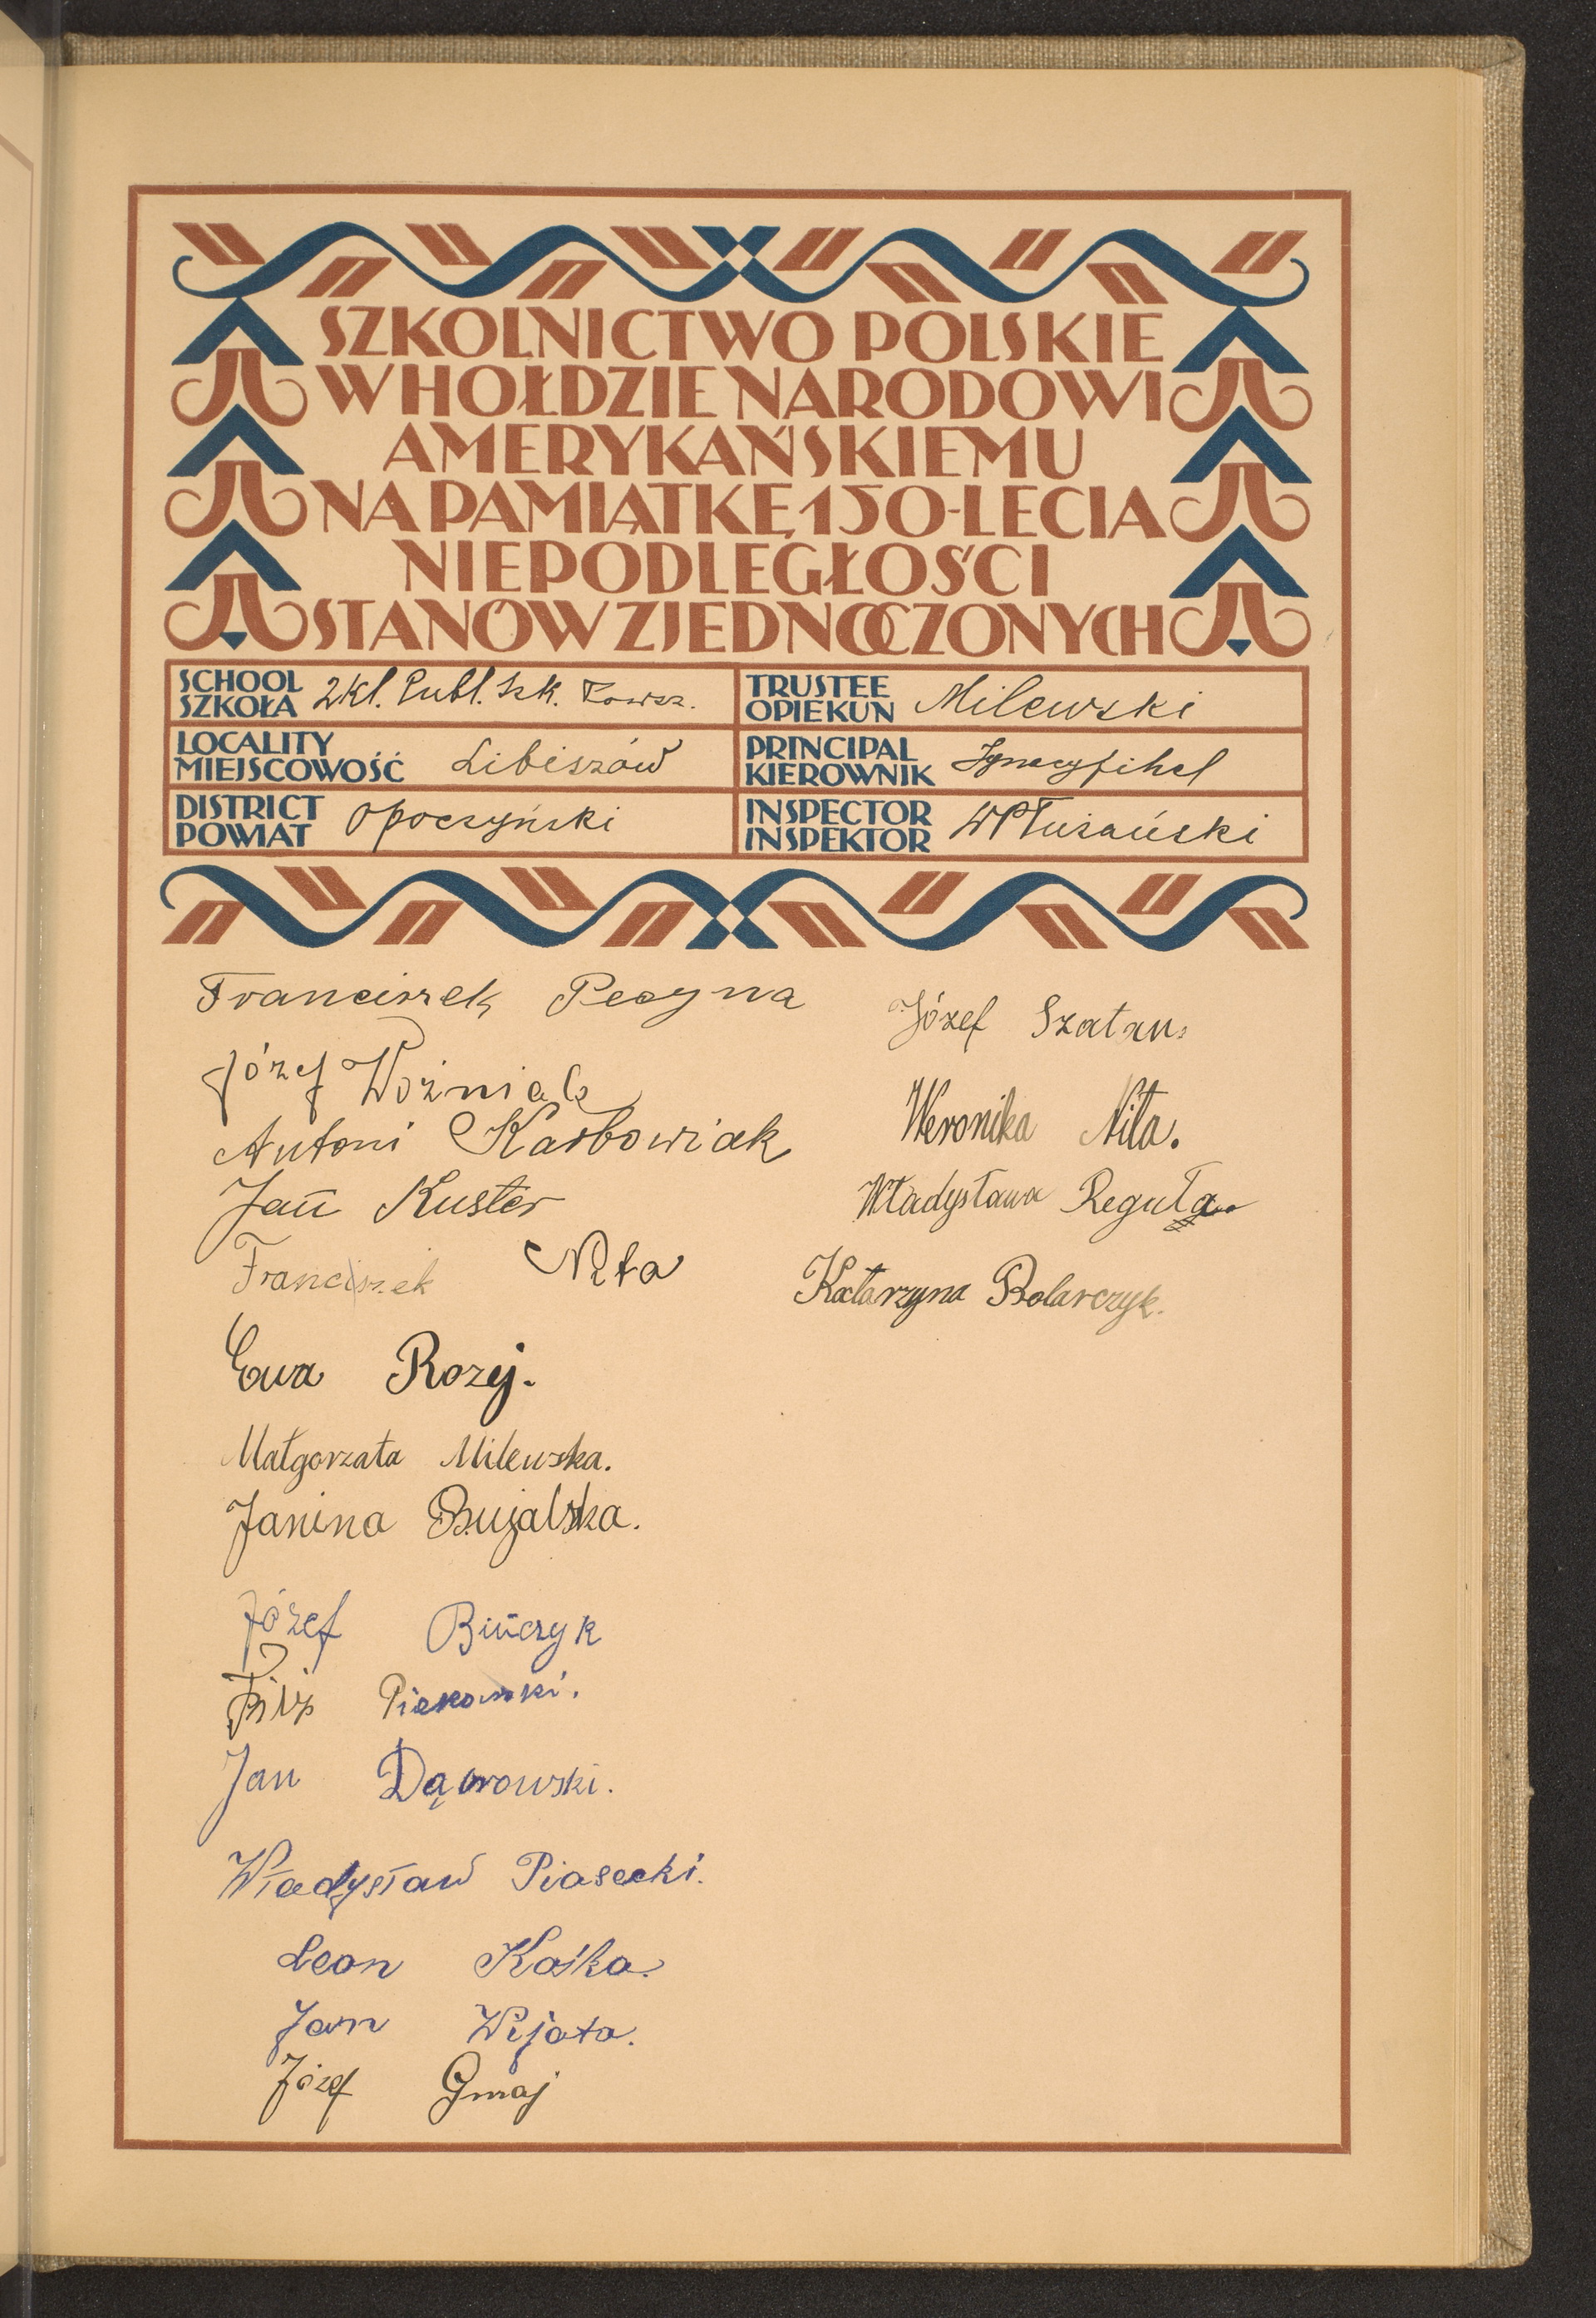 SZKOLNICTWO POLSKIE
W HOŁDZIE NARODOWI
AMERYKAŃSKIEMU
NA PAMIĄTKĘ 150-LECIA
NIEPODLEGŁOŚCI
STANÓW ZJEDNOCZONYCH
SCHOOL
SZKOŁA 2kl. Publ. Szk. Powsz.
TRUSTEE
OPIEKUN Milewski
LOCALITY
MIEJSCOWOŚĆ Libiszów
PRINCIPAL
KIEROWNIK Ignacy
DISTRICT
POWIAT Opoczyński
INSPECTOR
INSPEKTOR
Franciszek Pecyna
Józef Woźniak
Antoni Karbowiak
Jan Kuster
Franciszek Nita
Ewa Rozej.
Małgorzata Milewska.
Janina Bujalska.
Józef Bińczyk
Filip Piekowski.
Jan Dąbrowski.
Władysław Piasecki.
Leon Kośka.
Jan Wijata.
Józef Gmaj
Józef Szatan.
Weronika Nita.
Władysława Reguła
Katarzyna Bolarczyk.